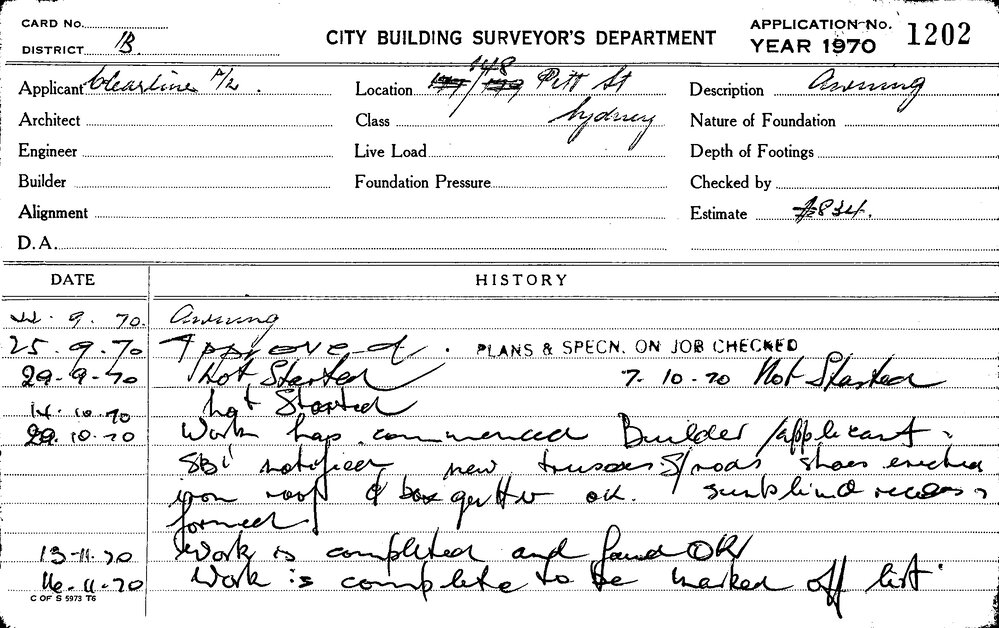 CARD No.
DISTRICT B.
CITY BUILDING SURVEYOR'S DEPARTMENT
APPLICATION No. 1202
YEAR 1970
Applicant Clearline P/L.
Location 148 Pitt St
Description Awning
Architect
Class Sydney
Nature of Foundation
Engineer
Live Load
Depth of Footings
Builder
Foundation Pressure
Checked by
Alignment
Estimate $834.
D.A.
DATE HISTORY
9. 70. Awning
25. 9. 70 Approved. PLANS & SPECN. ON JOB CHECKED
29-9-70 Not Started 7-10-70 Not Started
14.10.70 Not Started
29.10.70 Work has commenced Builder/applicant.
SBI notified new trusses S/rods shoes erected
iron roof & box gutter ok. sunblind recess
formed
13-11.70 Work is completed and found OK
16-11-70 Work is complete to be marked off list
C OF S 5973 T6